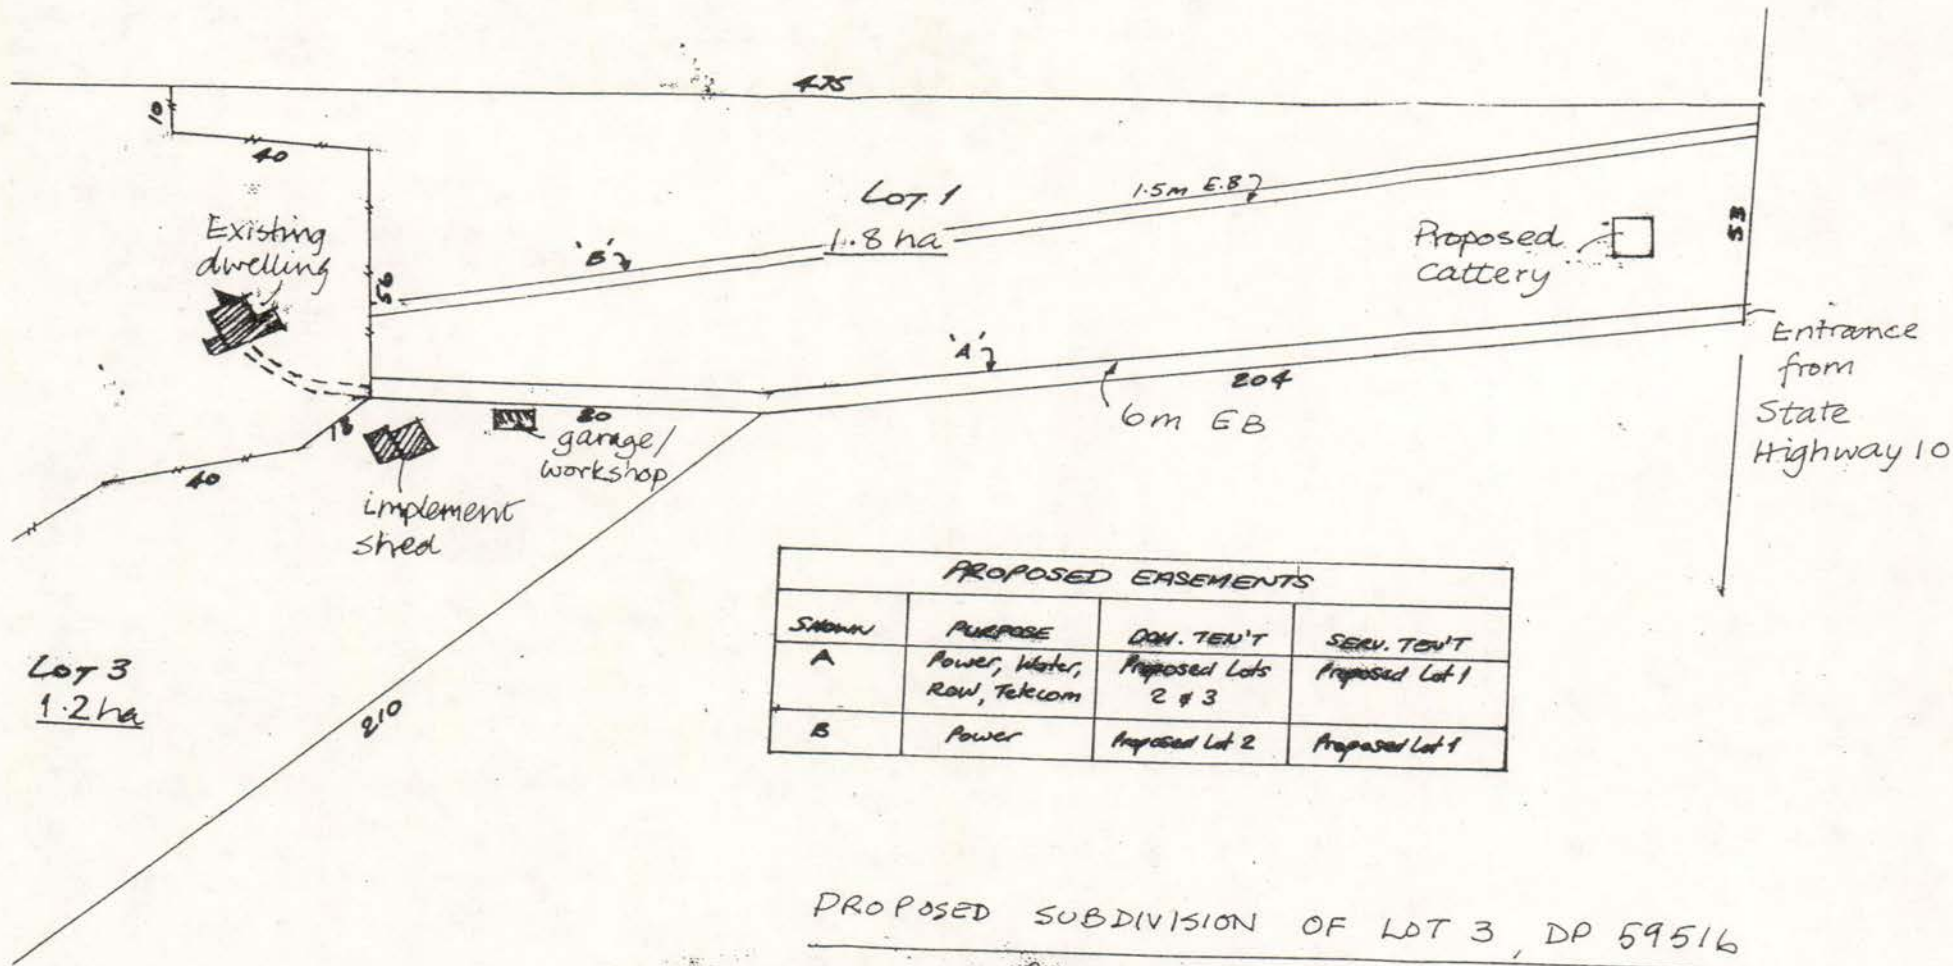 475
10
40
LOT 1
1.8 ha
1.5m E.B
Existing
dwelling
'B'
56
Proposed
cattery
53
'A'
204
6m EB
Entrance
from
State
Highway 10
18
80
garage/
workshop
40
implement
shed
LOT 3
1.2 ha
210
PROPOSED EASEMENTS
SHOWN PURPOSE DOM. TEN'T SERV. TEN'T
A Power, Water, Proposed Lots Proposed Lot 1
ROW, Telecom 2 & 3
B Power Proposed Lot 2 Proposed Lot 1
PROPOSED SUBDIVISION OF LOT 3, DP 59516